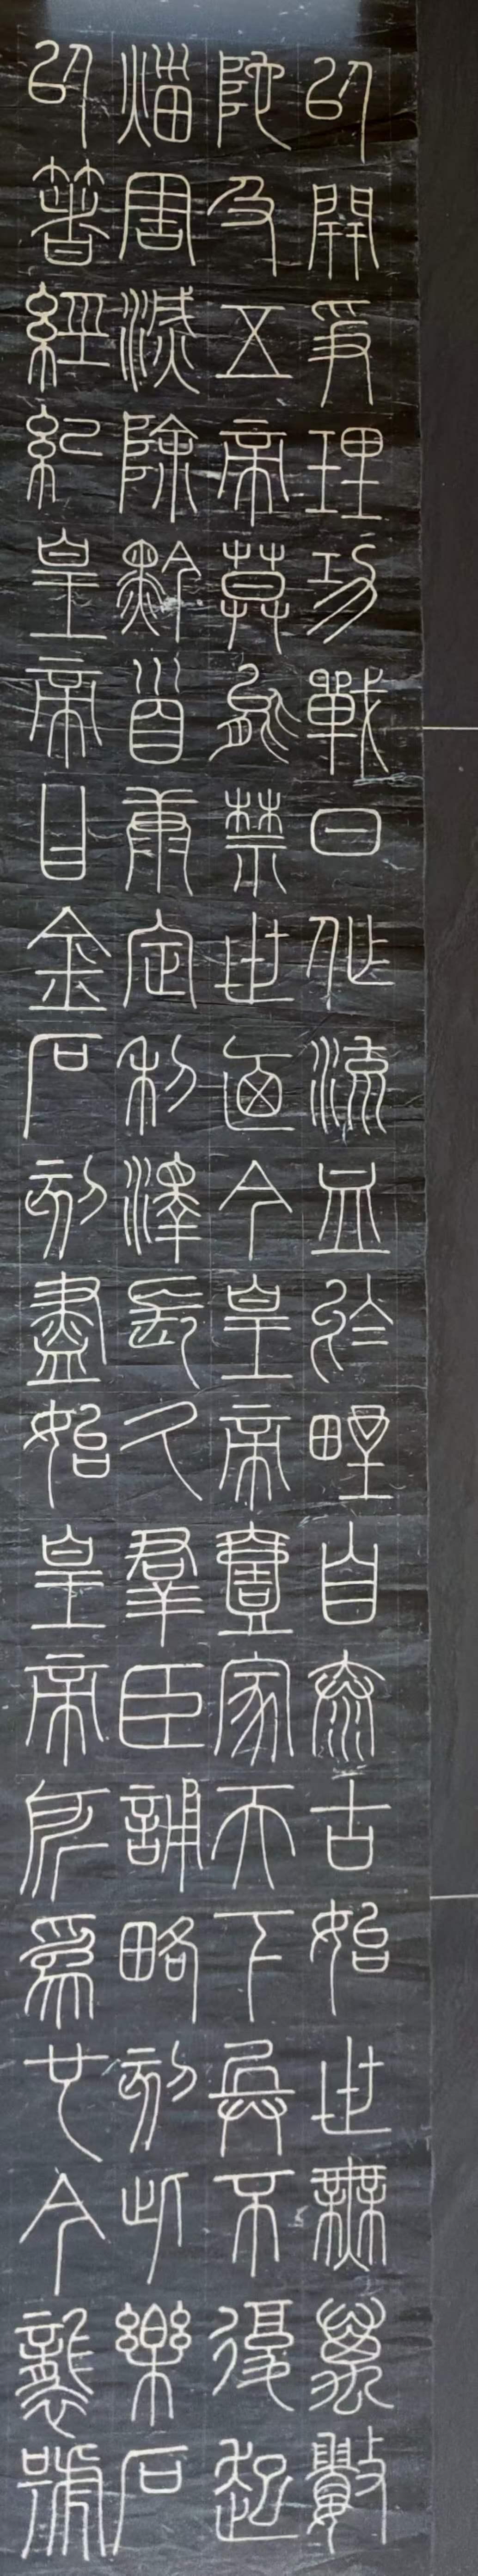 以開爭理功戰日作流血於野自泰古始世無萬數
陀及五帝莫能禁止迺今皇帝壹家天下兵不復起
災害滅除黔首康定利澤長久羣臣誦略刻此樂石
以著經紀皇帝曰金石刻盡始皇帝所為也今襲號